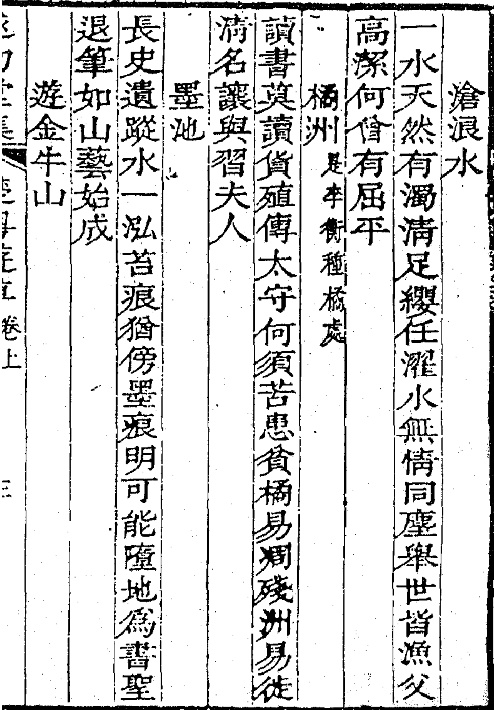 滄浪水
一水天然有濁淸足纓任濯水無情同塵舉世皆漁父
高潔何曾有屈平
橘洲是李衡種橘處
讀書莫讀貨殖傳太守何須苦患貧橘易凋殘洲易徙
淸名讓與習夫人
墨池
長史遺蹤水一泓苔痕猶傍墨痕明可能墮地爲書聖
退筆如山藝始成
遊金牛山
堂集
卷上
三